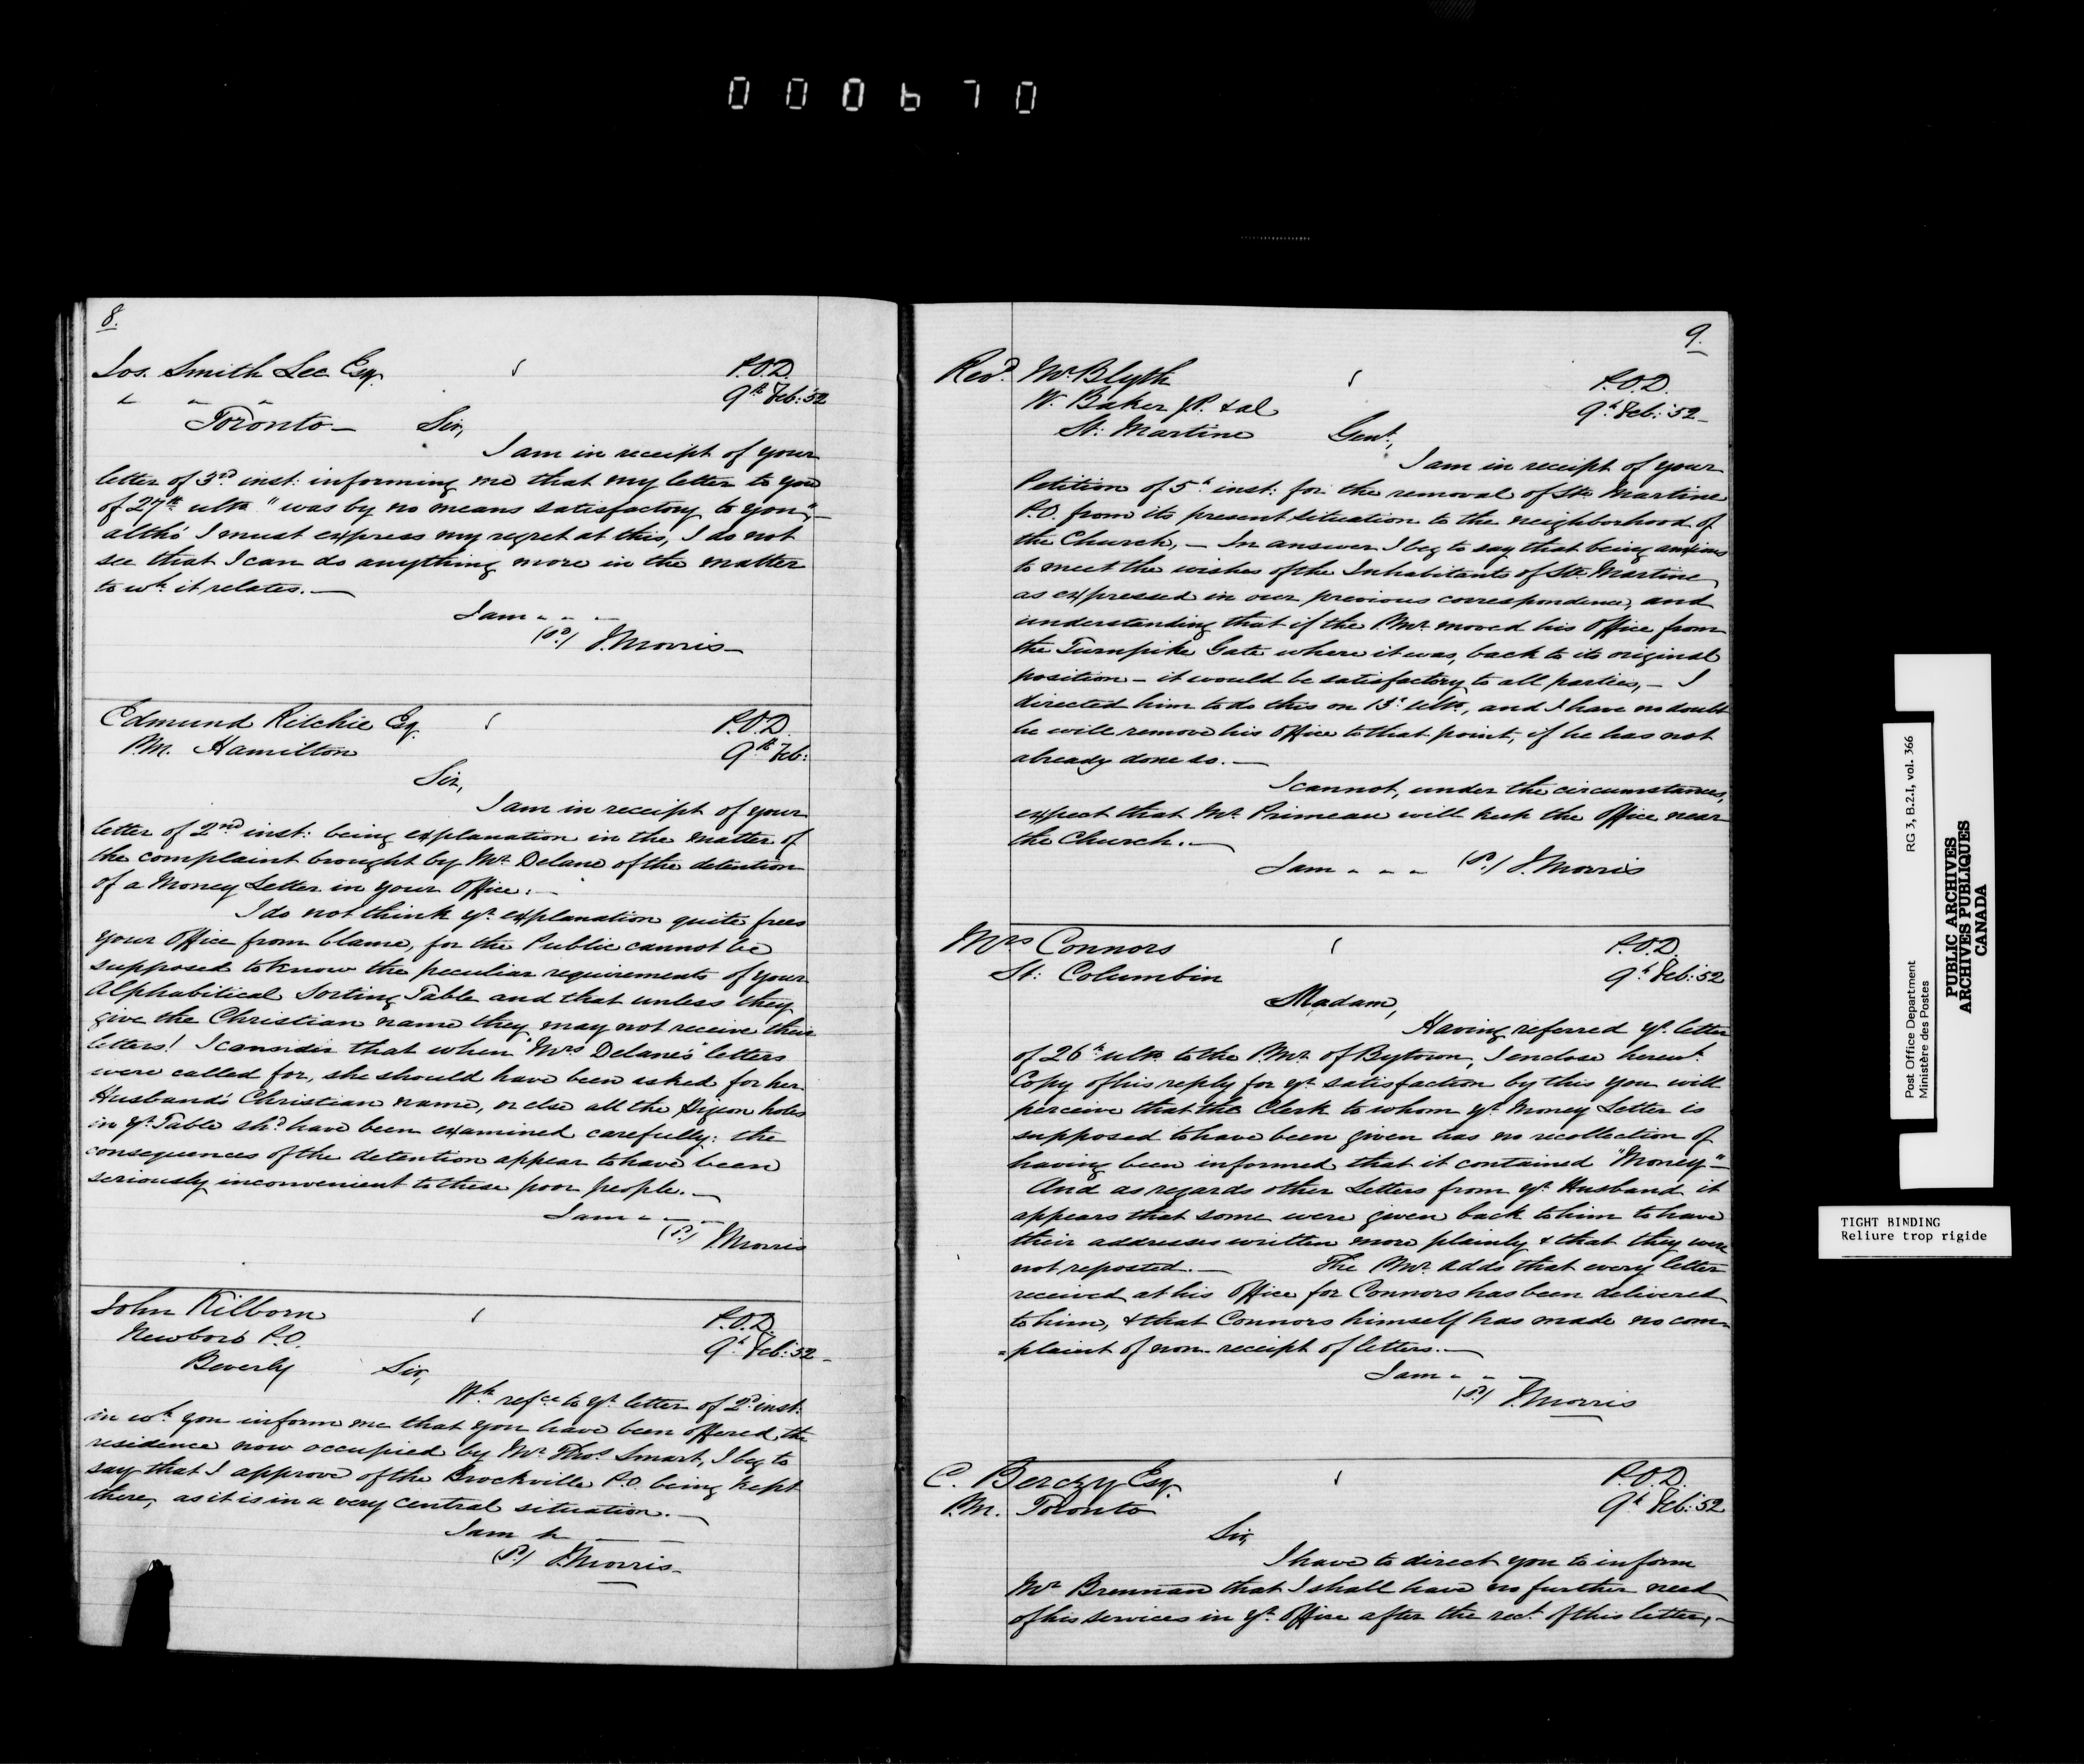 000670
8.
Jos. Smith Lee Esq.
P.O.D.
9th Feb: 52
Toronto — Sir,
I am in receipt of your
letter of 3rd inst: informing me that my letter to you
of 27th ulto "was by no means satisfactory to you", —
altho' I must express my regret at this, I do not
see that I can do anything more in the matter
to wh it relates. —
I am - - -
(sd) J. Morris —
Edmund Ritchie Esq.
P.O.D.
P.M. Hamilton
9th Feb:
Sir,
I am in receipt of your
letter of 2nd inst: being explanation in the matter of
the complaint brought by Mr Delane of the detention
of a Money Letter in your Office. —
I do not think yr explanation quite frees
your Office from blame, for the Public cannot be
supposed to know the peculiar requirements of your
Alphabitical Sorting Table and that unless they
give the Christian name they may not receive their
letters! I consider that when "Mrs Delane's" letters
were called for, she should have been asked for her
Husband's Christian name, or else all the Pigeon holes
in yr Table shd have been examined carefully: the
consequences of the detention appear to have been
seriously inconvenient to these poor people. —
I am - - -
(sd) J. Morris
John Kilborn
P.O.D.
Newboro P.O.
9th Feb: 52 -
Beverly Sir,
Wh refce to yr letter of 2d inst:
in wh you inform me that you have been offered the
residence now occupied by Mr Thos Smart, I beg to
say that I approve of the Brockville P.O. being kept
there, as it is in a very central situation. —
I am
(sd) J. Morris -
9.
Revd Mr Blyth
P.O.D.
W. Baker J.P. & al
9th Feb: 52 -
St: Martine Gent,
I am in receipt of your
Petition of 5th inst: for the removal of Ste Martine
P.O. from its present situation to the neighborhood of
the Church, — In answer I beg to say that being anxious
to meet the wishes of the Inhabitants of Ste Martine
as expressed in our previous correspondence, and
understanding that if the P.Mr moved his Office from
the Turnpike Gate where it was, back to its original
position — it would be satisfactory to all parties, — I
directed him to do this on 13th ulto, and I have no doubt
he will remove his Office to that point, if he has not
already done so. —
I cannot, under the circumstances,
expect that Mr Primeau will keep the Office near
the Church. —
I am - - - (sd) J. Morris
Mrs Connors
P.O.D.
St: Columbin
9th Feb: 52
Madam,
Having referred yr letter
of 26th ulto to the P.Mr of Bytown, I enclose herewt
Copy of his reply for yr satisfaction by this you will
perceive that the Clerk to whom yr Money Letter is
supposed to have been given has no recollection of
having been informed that it contained "Money" —
And as regards other Letters from yr Husband it
appears that some were given back to him to have
their addresses written more plainly & that they were
not reposted. — The P.Mr adds that every letter
received at his Office for Connors has been delivered
to him, & that Connors himself has made no com-
=plaint of non receipt of letters. —
I am - - -
(sd) J. Morris
C. Berczy Esq.
P.O.D.
P.M. Toronto
9th Feb: 52
Sir,
I have to direct you to inform
Mr Brennan that I shall have no further need
of his services in yr Office after the rect of this letter, —
Post Office Department RG 3, B.2.1, vol. 366
Ministère des Postes
PUBLIC ARCHIVES
ARCHIVES PUBLIQUES
CANADA
TIGHT BINDING
Reliure trop rigide